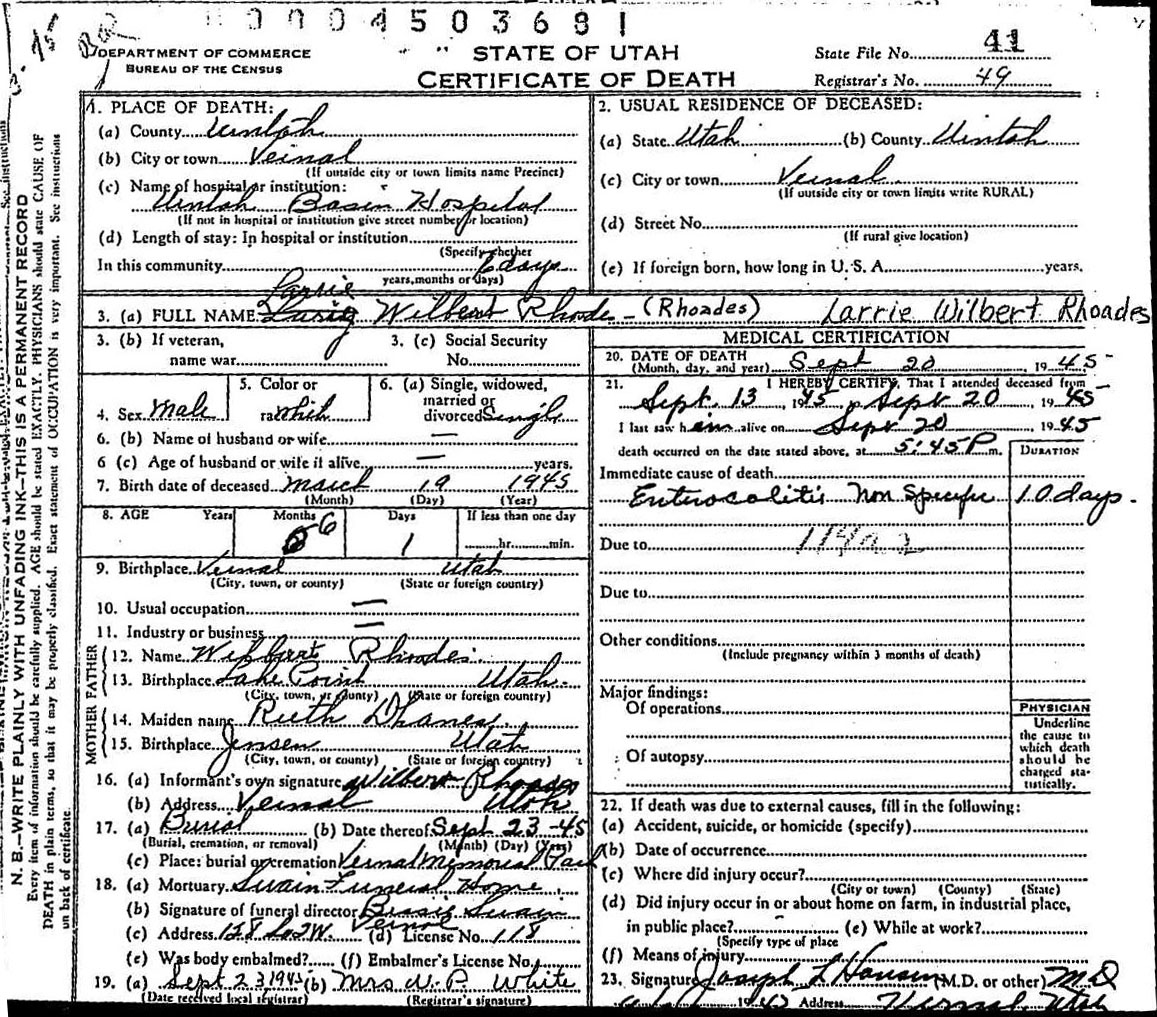 0004503681
DEPARTMENT OF COMMERCE
BUREAU OF THE CENSUS
STATE OF UTAH
CERTIFICATE OF DEATH
State File No. 41
Registrar's No. 49
N. B.—WRITE PLAINLY WITH UNFADING INK—THIS IS A PERMANENT RECORD
Every item of information should be carefully supplied. AGE should be stated EXACTLY. PHYSICIANS should state CAUSE OF
DEATH in plain terms, so that it may be properly classified. Exact statement of OCCUPATION is very important. See instructions
on back of certificate.
1. PLACE OF DEATH:
(a) County Uintah
(b) City or town Vernal
(If outside city or town limits name Precinct)
(c) Name of hospital or institution:
Uintah Basin Hospital
(If not in hospital or institution give street number or location)
(d) Length of stay: In hospital or institution
(Specify whether
In this community 6 days
years, months or days)
2. USUAL RESIDENCE OF DECEASED:
(a) State Utah (b) County Uintah
(c) City or town Vernal
(If outside city or town limits write RURAL)
(d) Street No.
(If rural give location)
(e) If foreign born, how long in U. S. A. years.
Larrie
3. (a) FULL NAME Wilbert Rhodes (Rhoades) Larrie Wilbert Rhoades
3. (b) If veteran,
name war
3. (c) Social Security
No.
4. Sex Male
5. Color or
race White
6. (a) Single, widowed,
married or
divorced Single
6. (b) Name of husband or wife —
6 (c) Age of husband or wife if alive — years.
7. Birth date of deceased March 19 1945
(Month) (Day) (Year)
8. AGE Years Months Days If less than one day
6 1 hr. min.
9. Birthplace Vernal Utah
(City, town, or county) (State or foreign country)
10. Usual occupation —
11. Industry or business —
FATHER
12. Name Wilbert Rhodes
13. Birthplace Lake Point Utah
(City, town, or county) (State or foreign country)
MOTHER
14. Maiden name Ruth
15. Birthplace Jensen Utah
(City, town, or county) (State or foreign country)
16. (a) Informant's own signature Wilbert Rhoades
(b) Address Vernal Utah
17. (a) Burial (b) Date thereof Sept 23-45
(Burial, cremation, or removal) (Month) (Day) (Year)
(c) Place: burial or cremation Vernal Memorial Park
18. (a) Mortuary Swain Funeral Home
(b) Signature of funeral director Bessie Swain
(c) Address Vernal (d) License No. 118
(e) Was body embalmed? (f) Embalmer's License No.
19. (a) Sept 23, 1945 (b) Mrs W. P. White
(Date received local registrar) (Registrar's signature)
MEDICAL CERTIFICATION
20. DATE OF DEATH
(Month, day, and year) Sept 20 1945
21. I HEREBY CERTIFY, That I attended deceased from
Sept. 13, 1945 to Sept 20, 1945
I last saw him alive on Sept 20 1945
death occurred on the date stated above, at 5:45 P m.
DURATION
Immediate cause of death
Enterocolitis Non Specific 10 days.
Due to
Due to
Other conditions
(Include pregnancy within 3 months of death)
Major findings:
Of operations
Of autopsy
PHYSICIAN
Underline
the cause to
which death
should be
charged sta-
tistically.
22. If death was due to external causes, fill in the following:
(a) Accident, suicide, or homicide (specify)
(b) Date of occurrence
(c) Where did injury occur?
(City or town) (County) (State)
(d) Did injury occur in or about home on farm, in industrial place,
in public place? (e) While at work?
(Specify type of place
(f) Means of injury
23. Signature Joseph L Hansen (M.D. or other) M D
Address Vernal Utah